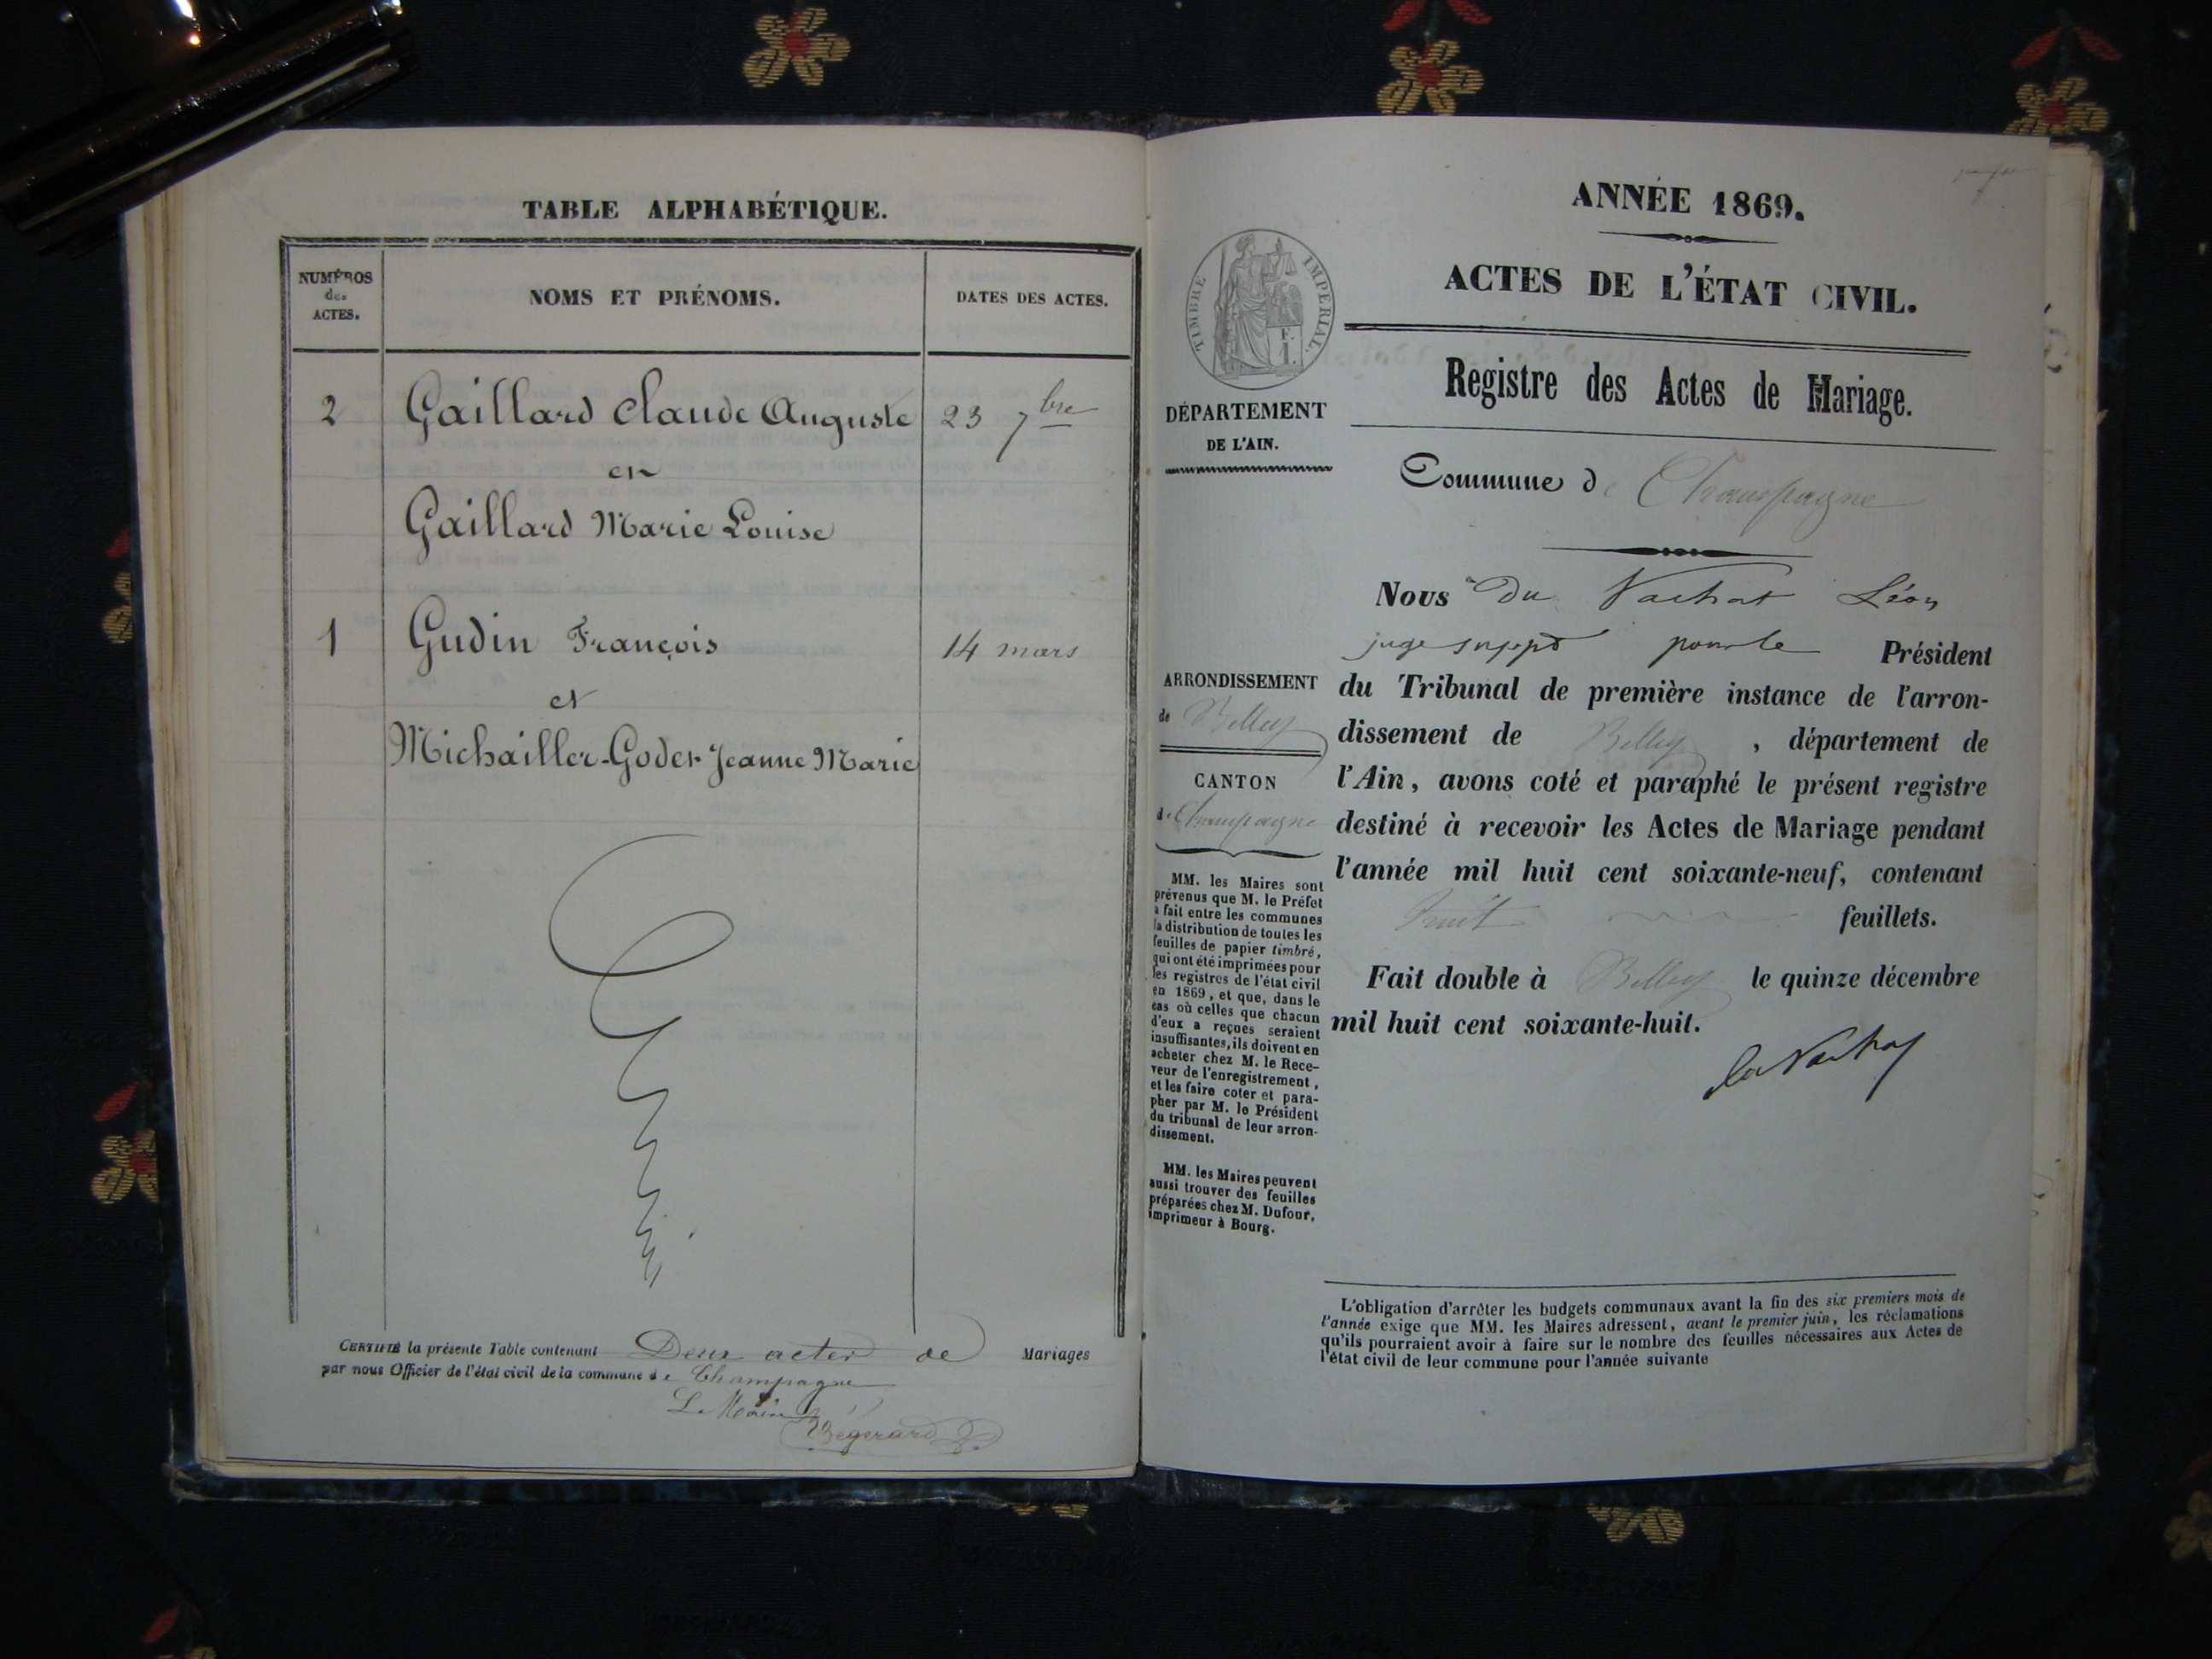 TABLE ALPHABÉTIQUE.
NUMÉROS
des
ACTES.
NOMS ET PRÉNOMS.
DATES DES ACTES.
2 Gaillard Claude Auguste 23 7bre
et
Gaillard Marie Louise
1 Gudin François 14 mars
et
Michailler-Godet Jeanne Marie
CERTIFIÉ la présente Table contenant Deux actes de Mariages
par nous Officier de l'état civil de la commune de Champagne
Le Maire
Bégerard
ANNÉE 1869.
ACTES DE L'ÉTAT CIVIL.
TIMBRE IMPERIAL.
F.
1.
Registre des Actes de Mariage.
DÉPARTEMENT
DE L'AIN.
Commune de Champagne
Nous Du Vachat Léon
juge suppt pour le Président
ARRONDISSEMENT
de Belley
CANTON
de Champagne
du Tribunal de première instance de l'arron-
dissement de Belley, département de
l'Ain, avons coté et paraphé le présent registre
destiné à recevoir les Actes de Mariage pendant
l'année mil huit cent soixante-neuf, contenant
huit feuillets.
Fait double à Belley le quinze décembre
mil huit cent soixante-huit.
du Vachat
MM. les Maires sont
prévenus que M. le Préfet
a fait entre les communes
la distribution de toutes les
feuilles de papier timbré,
qui ont été imprimées pour
les registres de l'état civil
en 1869, et que, dans le
cas où celles que chacun
d'eux a reçues seraient
insuffisantes, ils doivent en
acheter chez M. le Rece-
veur de l'enregistrement,
et les faire coter et para-
pher par M. le Président
du tribunal de leur arron-
dissement.
MM. les Maires peuvent
aussi trouver des feuilles
préparées chez M. Dufour,
imprimeur à Bourg.
L'obligation d'arrêter les budgets communaux avant la fin des six premiers mois de
l'année exige que MM. les Maires adressent, avant le premier juin, les réclamations
qu'ils pourraient avoir à faire sur le nombre des feuilles nécessaires aux Actes de
l'état civil de leur commune pour l'année suivante